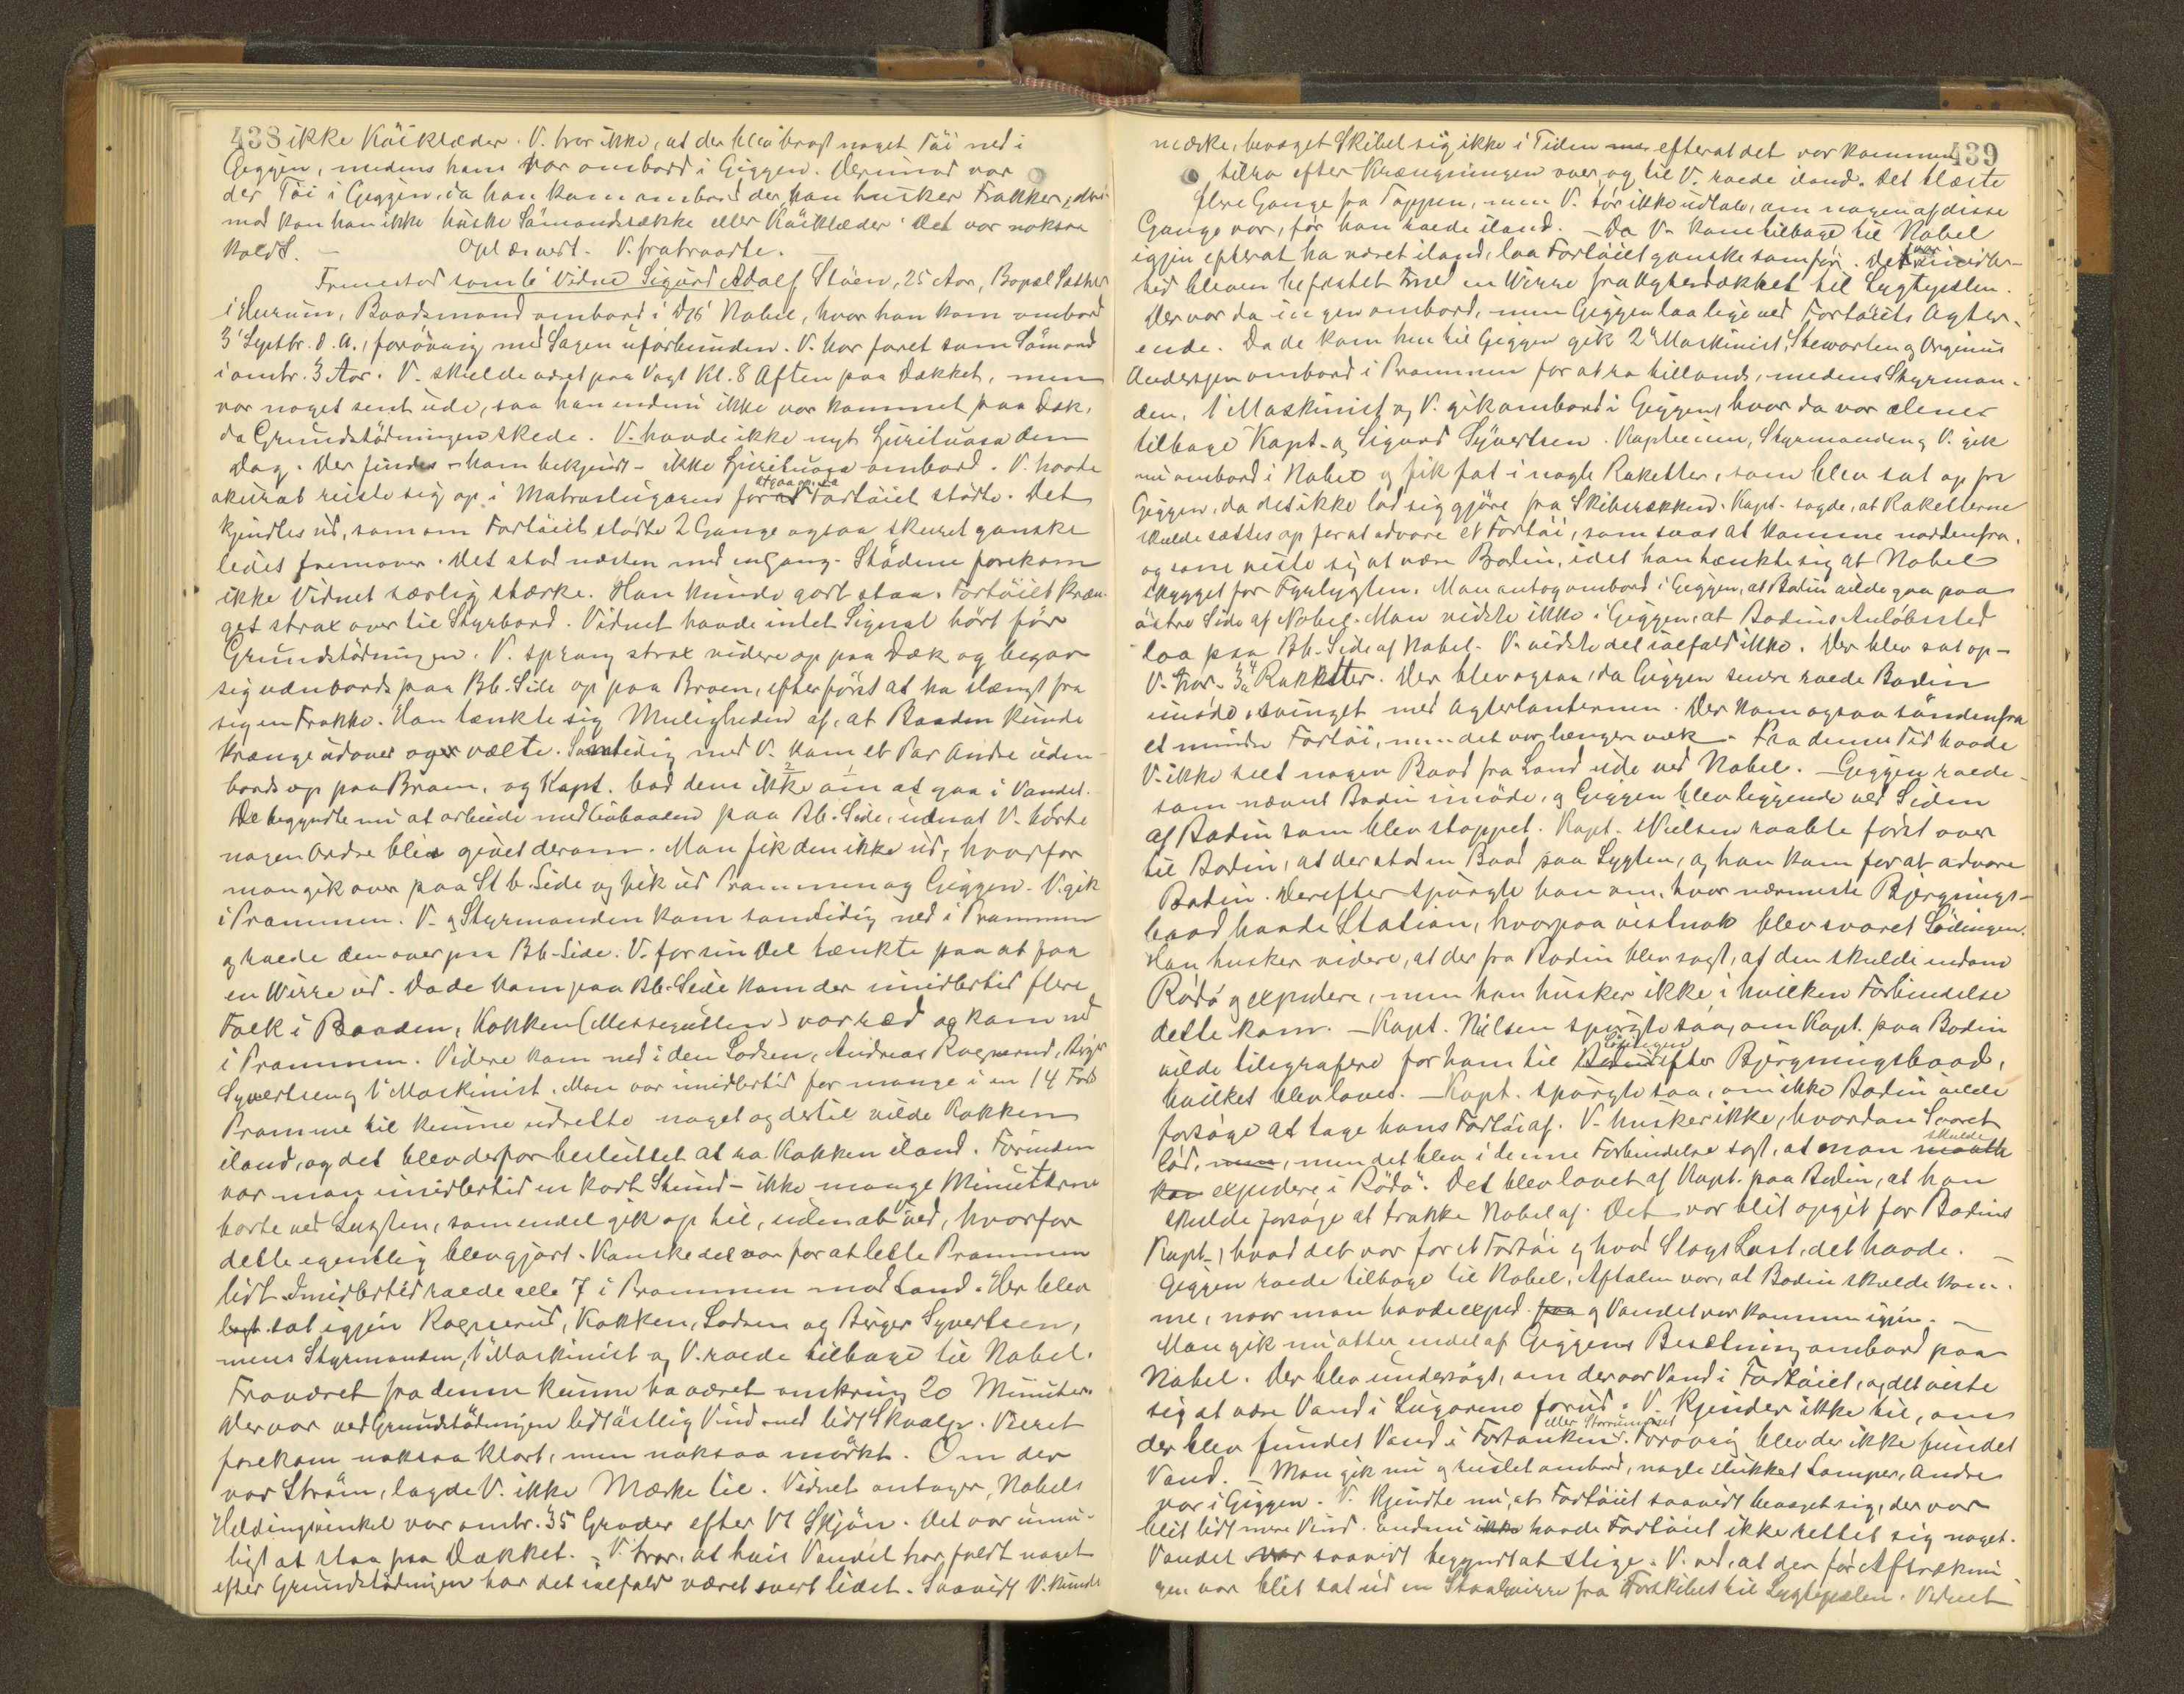 438 ikke Köiklæder. V. tror ikke, at der blev bragt noget Töi ned i
Giggen, medens han var ombord i Giggen. Derimod var
der Töi i Giggen, da han kom ombord der, han husker Frakker, deri-
mod kan han ikke huske Sömandssække eller Köiklæder. Det var noksaa
koldt. — Oplæs. vedt. V. fratraadte.
Fremstod som 6' Vidne Sigurd Adolf Stöen, 25 Aar, Bopæl Sætre
i Hurum, Baadsmand ombord i D/S Nobel, hvor han kom ombord
3' Septbr. d. A., forövrig med Sagen uforbunden. V. har faret som Sömand
i omtr. 3 Aar. V. skulde været paa Vagt Kl. 8 Aften paa Dækket, men
var noget sent ude, saa han endnu ikke var kommet paa Dæk,
da Grundstödningen skede. V. havde ikke nydt Spirituosa den
Dag. Der findes - ham bekjendt - ikke Spirituosa ombord. V. havde
akurat reiste sig op i Matroslugaren for at gaa op, da Fartöiet stödte. Det
kjendtes ud, som om Fartöiet stödte 2 Gange ogsaa skuret ganske
lidet fremover. Det stod næsten med engang. Stödene forekom
ikke Vidnet særlig stærke. Han kunde godt staa. Fartöiet kræn-
get strax over til Styrbord. Vidnet havde intet Signal hört för
Grundstödningen. V. sprang strax videre op paa Dæk og begav
sig udenbords paa Bb. Side op paa Broen, efter först at ha slængt fra
sig en Frakke. Han tænkte sig Muligheden af, at Baaden kunde
krænge udover og vælte. Samtidig med V. kom et Par Andre uden-
bords op paa Broen, og Kapt. bad dem ikke om at gaa i Vandet.
De begyndte nu at arbeide med Livbaaden paa Bb. Side, uden at V. hörte
nogen Ordre blev givet derom. Man fik den ikke ud, hvorfor
man gik over paa Stb. Side og fik ud Prammen og Giggen. V. gik
i Prammen. V. og Styrmanden kom samtidig ned i Prammen
og roede den over paa Bb. Side. V. for sin Del tænkte paa at faa
en Wirre ud. Da de kom paa Bb. Side kom der imidlertid flere
Folk i Baaden, Kokken (Messegutten) var ræd og kom ned
i Prammen. Videre kom ned i den Lodsen, Andreas Ragnerud, Birger
Syvertsen og 1' Maskinist. Man var imidlertid for mange i en 14 Fods
Pramme til kunne udrette noget og dertil vilde Kokken
iland, og det blev derfor besluttet at ro Kokken iland. Forinden
var man imidlertid en kort Stund - ikke mange Minutterne
borte ved Lygten, som endel gik op til, uden at V. ved, hvorfor
dette egentlig blev gjort. Kanske det var for at lette Prammen
lidt. Imidlertid roede alle 7 i Prammen mod Land. Her blev
sat igjen Ragnerud, Kokken, Lodsen og Birger Syvertsen,
mens Styrmanden, 1' Maskinist og V. roede tilbage til Nobel.
Fraværet fra denne kunne ha været omkring 20 Minuter.
Der var ved Grundstödningen lidt östlig Vind med lidt Skvalp. Veiret
forekom noksaa klart, men noksaa mörkt. Om der
var Ström, lagde V. ikke Mærke til. Vidnet antager, Nobels
Heldingsvinkel var omtr. 35 Grader efter V's Skjön. Det var umu-
ligt at staa paa Dækket. V. tror, at hvis Vandet har faldt noget
efter Grundstödningen har det ialfald været svert lidet. Saavidt V. kunde
439
mærke, bevæget Skibet sig ikke i Tiden efterat det var kommen
tilro efter Krængningen over, og til V. roede iland. Det blæste
flere Gange fra Toppen, men V. tör ikke udtale, om nogen af disse
Gange var, för han roede iland. - Da V. kom tilbage til Nobel
igjen efterat ha været iland, laa Fartöiet ganske som för. Det var imidler-
tid bleven befæstet med en Wirre fra Hytterdækket til Lygtepælen.
Der var da ingen ombord, men Giggen laa lige ved Fartöiets Agter-
ende. Da de kom hen til Giggen gik 2' Maskinist, Stewarten og Orginius
Andersen ombord i Prammen for at ro tillands, medens Styrman-
den, 1' Maskinist og V. gik ombord i Giggen, hvor da var alene
tilbage Kapt. og Sigurd Syvertsen. Kapteinen, Styrmanden og V. gik
nu ombord i Nobel og fik fat i nogle Raketter, som blev sat op fra
Giggen, da det ikke lod sig gjöre fra Skibsrækken. Kapt. sagde, at Raketterne
skulde sættes op for at advare et Fartöi, som saas at komme nordenfra,
og som viste sig at være Bodin, idet han tænkte sig at Nobel
skygget for Fyrlygten. Man antog ombord i Giggen, at Bodin vilde gaa paa
östre Side af Nobel. Man vidste ikke i Giggen, at Bodins Anlöbssted
laa paa Bb. Side af Nobel. V. vidste det ialfald ikke. Der blev sat op -
V. tror - 3 a 4 Raketter. Der blev ogsaa, da Giggen senere roede Bodin
imöde, svinget med Agterlanternen. Der kom ogsaa söndenfra
et mindre Fartöi, men det var længere væk. Fra denne Tid havde
V. ikke seet nogen Baad fra Land ude ved Nobel. - Giggen roede
som nævnt Bodin imöde, og Giggen blev liggende ved Siden
af Bodin som blev stoppet. Kapt. Nielsen raabte först over
til Bodin, at der stod en Baad paa Lygten, og han kom for at advare
Bodin. Derefter spurgte han om, hvor nærmeste Bjergnings-
baad havde Station, hvorpaa vistnok blev svaret Lödingen.
Han husker videre, at der fra Bodin blev sagt, at den skulde indom
Rödö og expedere, men han husker ikke i hvilken Forbindelse
dette kom. - Kapt. Nielsen spurgte saa, om Kapt. paa Bodin
vilde telegrafere for ham til Lödingen efter Bjergningsbaad,
hvilket blev lovet. - Kapt. spurgte saa, om ikke Bodin vilde
forsöge at tage hans Fartöi af. V. husker ikke, hvordan Svaret
löd, men det blev i denne Forbindelse sagt, at man skulde
expedere i Rödö. Det blev lovet af Kapt. paa Bodin, at han
skulde forsöge at trække Nobel af. Det var blit opgit for Bodins
Kapt., hvad det var for et Fartöi og hvad Slags Last, det havde. —
Giggen roede tilbage til Nobel. Aftalen var, at Bodin skulde kom-
me, naar man havde exped. og Vandet var kommen igjen. —
Man gik nu atter endel af Giggens Besætning ombord paa
Nobel. Der blev undersögt, om der var Vand i Fartöiet, og det viste
sig at være Vand i Lugarene forud. V. kjender ikke til, om
der blev fundet Vand i Fortanken eller Storrummet. Forövrig blev der ikke fundet
Vand. - Man gik nu og ruslet ombord, nogle slukket Lamper, Andre
var i Giggen. V. kjendte nu, at Fartöiet saavidt bevæget sig, der var
blit lidt mere Vind. Endnu havde Fartöiet ikke rettet sig noget.
Vandet saavidt begyndt at stige. V. ved, at der för Aftrækni
gen var blit sat ud en Staalwirre fra Forskibet til Lygtepælen. Vidnet